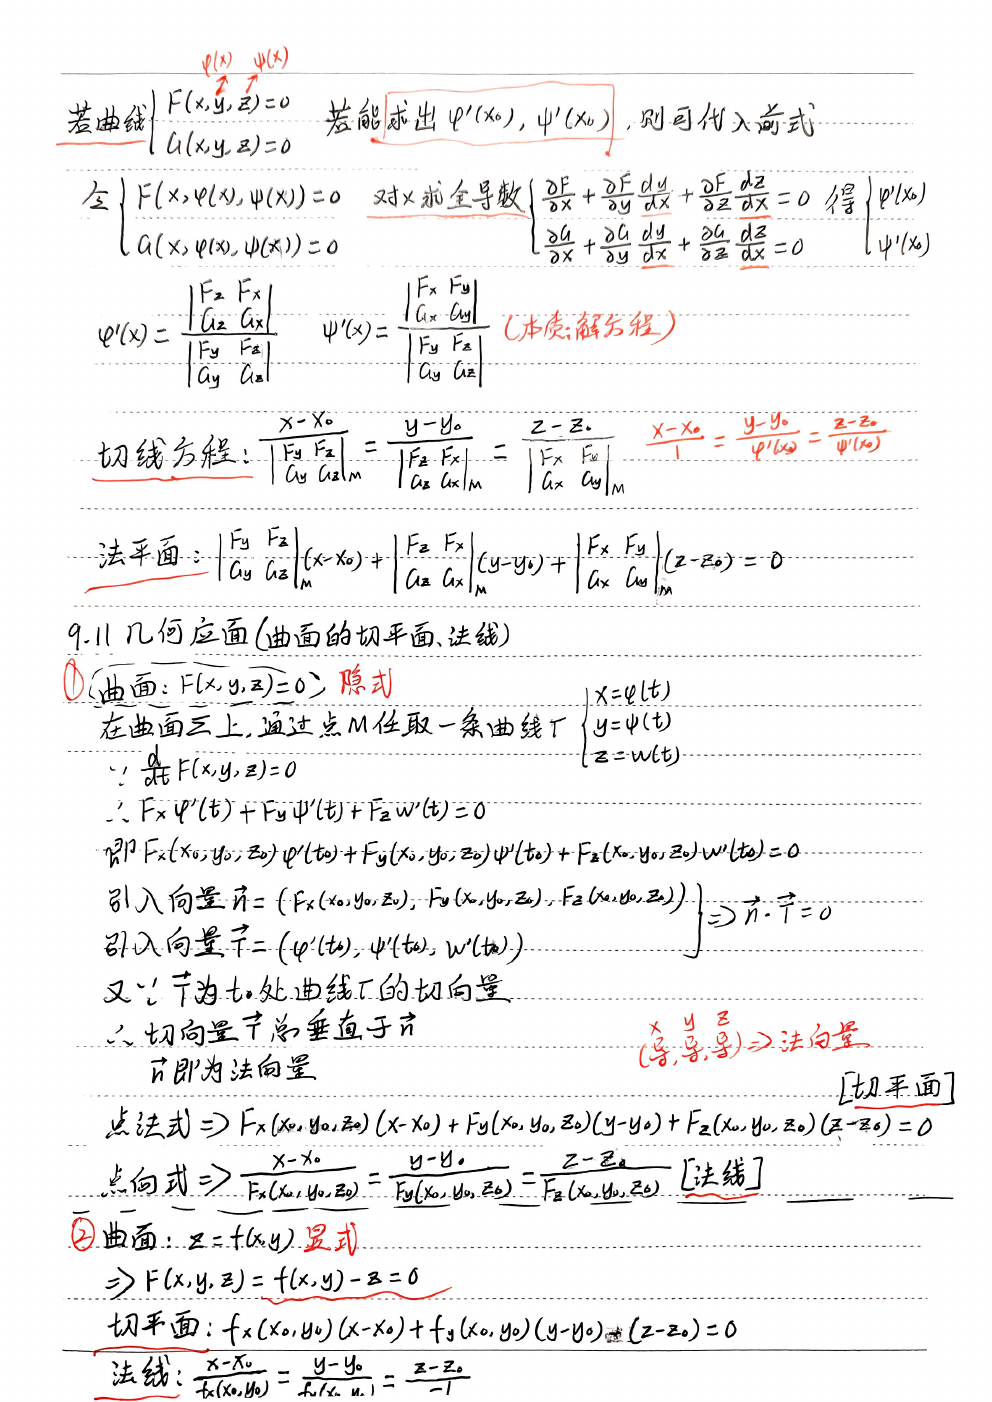 φ(x) ψ(x)
若曲线 { F(x,y,z)=0 G(x,y,z)=0 若能求出 φ'(x₀), ψ'(x₀), 则可代入前式
令 { F(x,φ(x),ψ(x))=0 G(x,φ(x),ψ(x))=0 对x求全导数 { ∂F/∂x + ∂F/∂y dy/dx + ∂F/∂z dz/dx = 0 ∂G/∂x + ∂G/∂y dy/dx + ∂G/∂z dz/dx = 0 得 { φ'(x₀) ψ'(x₀)
φ'(x) = |Fz Fx; Gz Gx| / |Fy Fz; Gy Gz| ψ'(x) = |Fx Fy; Gx Gy| / |Fy Fz; Gy Gz| (本质:解方程)
切线方程: (x-x₀)/|Fy Fz; Gy Gz|M = (y-y₀)/|Fz Fx; Gz Gx|M = (z-z₀)/|Fx Fy; Gx Gy|M (x-x₀)/1 = (y-y₀)/φ'(x₀) = (z-z₀)/ψ'(x₀)
法平面: |Fy Fz; Gy Gz|M (x-x₀) + |Fz Fx; Gz Gx|M (y-y₀) + |Fx Fy; Gx Gy|M (z-z₀) = 0
9.11 几何应面(曲面的切平面、法线)
① (曲面: F(x,y,z)=0) 隐式
在曲面Σ上,通过点M任取一条曲线Γ { x=φ(t) y=ψ(t) z=w(t)
∵ d/dt F(x,y,z)=0
∴ Fx φ'(t) + Fy ψ'(t) + Fz w'(t) = 0
即 Fx(x₀,y₀,z₀) φ'(t₀) + Fy(x₀,y₀,z₀) ψ'(t₀) + Fz(x₀,y₀,z₀) w'(t₀) = 0
引入向量 n⃗ = (Fx(x₀,y₀,z₀), Fy(x₀,y₀,z₀), Fz(x₀,y₀,z₀))
引入向量 T⃗ = (φ'(t₀), ψ'(t₀), w'(t₀)) } ⇒ n⃗·T⃗ = 0
又∵ T⃗为t₀处曲线Γ的切向量
∴ 切向量T⃗总垂直于n⃗
n⃗即为法向量
x y z
(导,导,导) ⇒ 法向量
[切平面]
点法式 ⇒ Fx(x₀,y₀,z₀)(x-x₀) + Fy(x₀,y₀,z₀)(y-y₀) + Fz(x₀,y₀,z₀)(z-z₀) = 0
点向式 ⇒ (x-x₀)/Fx(x₀,y₀,z₀) = (y-y₀)/Fy(x₀,y₀,z₀) = (z-z₀)/Fz(x₀,y₀,z₀) [法线]
② 曲面: z=f(x,y) 显式
⇒ F(x,y,z) = f(x,y)-z = 0
切平面: fx(x₀,y₀)(x-x₀) + fy(x₀,y₀)(y-y₀) - (z-z₀) = 0
法线: (x-x₀)/fx(x₀,y₀) = (y-y₀)/fy(x₀,y₀) = (z-z₀)/-1